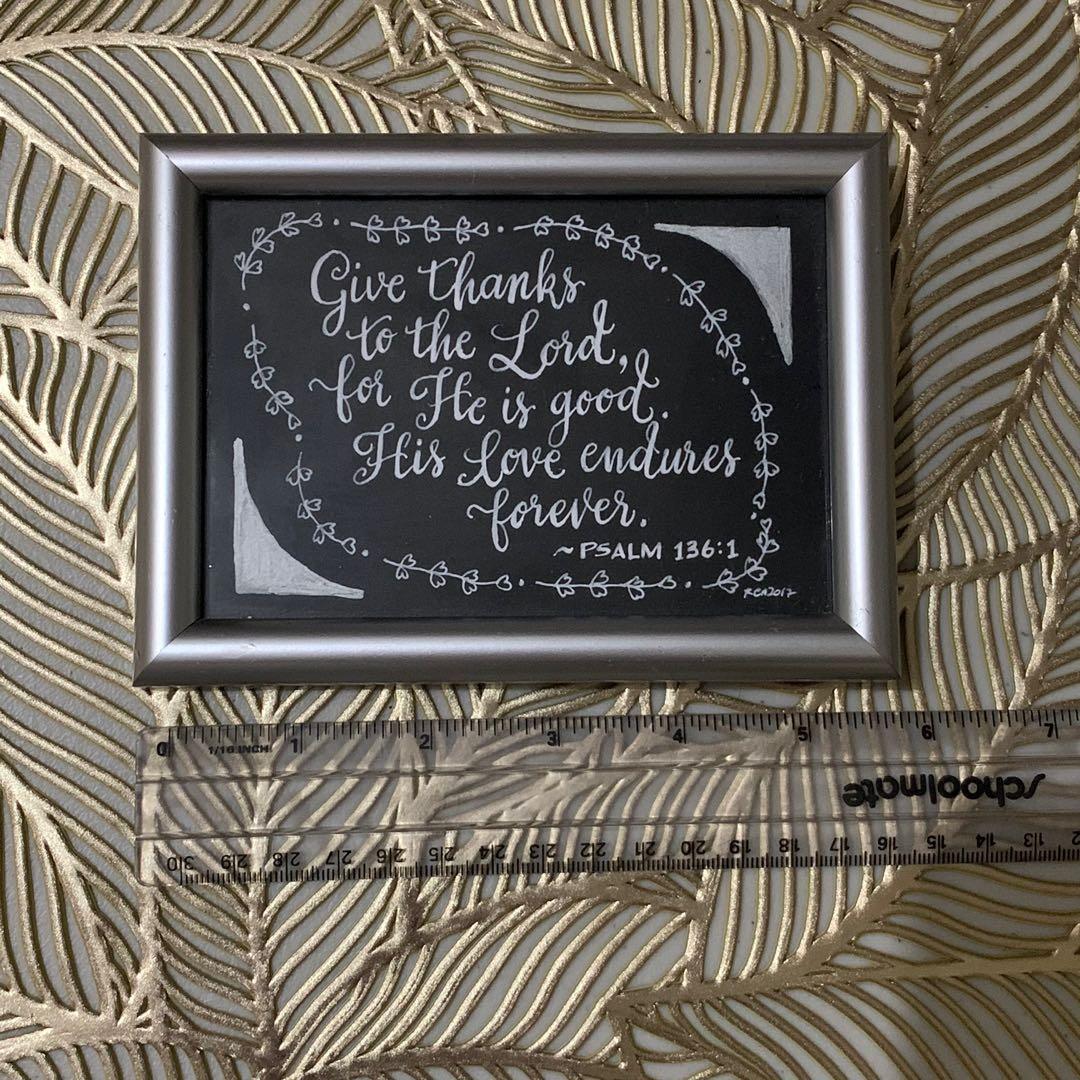 Give thanks
to the Lord,
for He is good.
His love endures
forever.
~PSALM 136:1
RCA2017
0 1/16 INCH 1 2 3 4 5 6 7
schoolmate
30 29 28 27 26 25 24 23 22 21 20 19 18 17 16 15 14 13 12